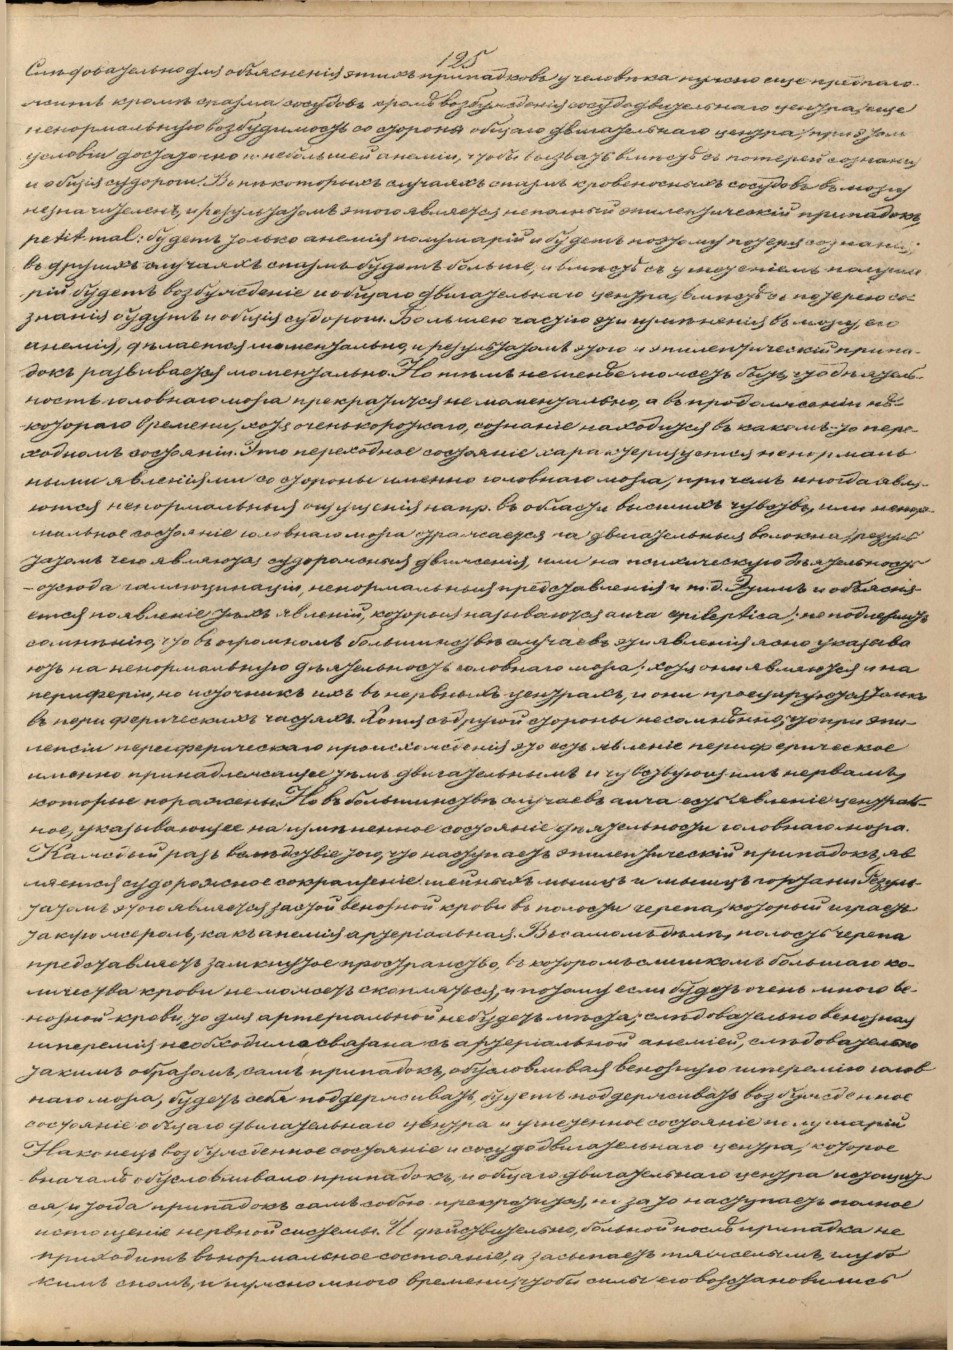 125
Слѣдовательно для объясненія этихъ припадковъ у человѣка нужно еще предполо-
жить кромѣ спазма сосудовъ кромѣ возбужденія сосудодвигательнаго центра, еще
ненормальную возбудимость со стороны общаго двигательнаго центра, при этомъ
условіи достаточно и небольшей анеміи, чтобы вызвать вмѣстѣ съ потерей сознанія
и общія судороги. Въ нѣкоторыхъ случаяхъ спазмъ кровеносныхъ сосудовъ въ мозгу
незначителенъ, и результатомъ этого является неполный эпилептическій припадокъ,
petit mal: будетъ только анемія полушарій и будетъ поэтому потеря сознанія;
въ другихъ случаяхъ спазмъ будетъ больше, и вмѣстѣ съ угнетеніемъ полуша
рій будетъ возбужденіе и общаго двигательнаго центра, вмѣстѣ съ потерею со
знанія будутъ и общія судороги. Большею частію эти измѣненія въ мозгу, его
анемія, дѣлается моментально, и результатомъ этого и эпилептическій припа-
докъ развивается моментально. Но тѣмъ не менѣе можетъ быть, что дѣятель-
ность головнаго мозга прекратится не моментально, а въ продолженіи нѣ-
котораго времени, хотя очень короткаго, сознаніе находится въ какомъ-то пере-
ходномъ состояніи. Это переходное состояніе характеризуется ненормаль
ными явленіями со стороны именно головнаго мозга, причемъ иногда явля-
ются ненормальныя ощущенія напр. въ области высшихъ чувствъ, или ненор-
мальное состояніе головнаго мозга отражается на двигательныя волокна, резуль
татомъ чего являются судорожныя движенія, или на психическую дѣятельность
– отсюда галлюцинаціи, ненормальныя представленія и т.д. Этимъ и объясня-
ется появленіе тѣхъ явленій, которыя называются аura epileptica; не подлежитъ
сомнѣнію, что въ огромномъ большинствѣ случаевъ эти явленія ясно указыва
ютъ на ненормальную дѣятельность головнаго мозга; хотя они являются и на
периферіи, но источникъ ихъ въ нервныхъ центрахъ, и они проецируются только
въ периферическихъ частяхъ. Хотя съ другой стороны несомнѣнно, что при эпи-
лепсіи периферическаго происхожденія это есть явленіе периферическое
именно принадлежащее тѣмъ двигательнымъ и чувствующимъ нервамъ,
которые поражены. Но въ большинствѣ случаевъ аura есть явленіе централь-
ное, указывающее на измѣненное состояніе дѣятельности головнаго мозга.
Каждый разъ вслѣдствіе того, что наступаетъ эпилептическій припадокъ, яв
ляется судорожное сокращеніе шейныхъ мышцъ и мышцъ гортани. Резуль-
татомъ этого является застой венозной крови въ полости черепа, который играетъ
такую же роль, какъ анемія артеріальная. Въ самомъ дѣлѣ, полость черепа
представляетъ замкнутое пространство, въ которомъ слишкомъ большаго ко-
личества крови не можетъ скопляться, и потому если будетъ очень много ве-
нозной крови, то для артериальной не будетъ мѣста; слѣдовательно венозная
гиперемія необходимо связана съ артеріальной анеміей, слѣдовательно
такимъ образомъ, самъ припадокъ, обусловливая венозную гиперемію голов
наго мозга, будетъ себя поддерживать, будетъ поддерживать возбужденное
состояніе общаго двигательнаго центра и угнетенное состояніе полушарій
Наконецъ возбужденное состояніе и сосудодвигательнаго центра, которое
вначалѣ обусловливало припадокъ, и общаго двигательнаго центра истощит
ся, и тогда припадокъ самъ собою прекратится, но зато наступаетъ полное
истощеніе нервной системы. И дѣйствительно, больной послѣ припадка не
приходитъ въ нормальное состояніе, а засыпаетъ тяжелымъ глубо
кимъ сномъ, и нужно много времени, чтобы силы его возстановились